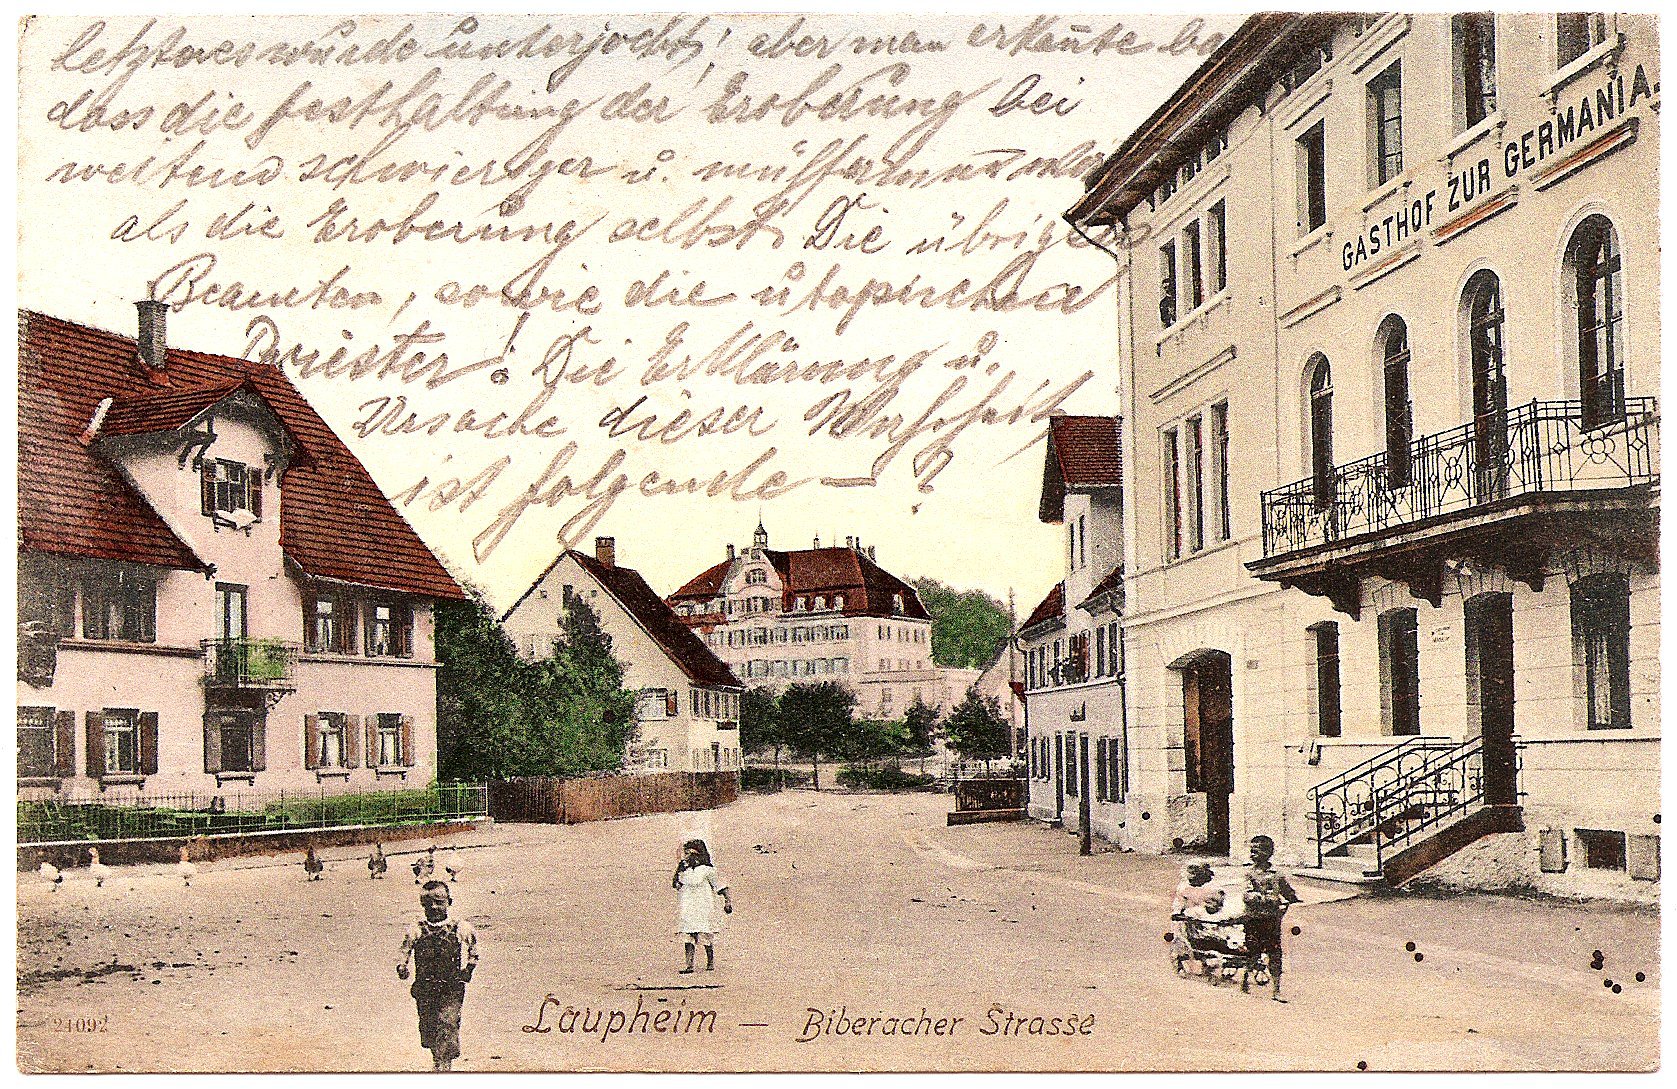 letzteres wurde unterjocht, aber man erkannte ba
dass die festhaltung der Eroberung bei
weitend schwieriger u.
als die Eroberung selbst. Die übrigen
Beamten, sowie die utopischen
Priester! Die Erklärung u.
Ursache dieser Wahrheit
ist folgende — ?
GASTHOF ZUR GERMANIA.
24092
Laupheim — Biberacher Strasse